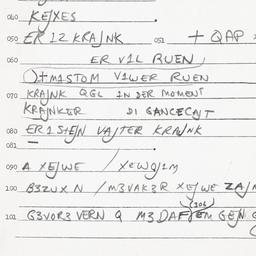 040 KEJXES
050 ER 12 KRANK 051 + QAP
060 ER V1L RUEN
)+M1STOM V1WER RUEN
070 KRANK QGL IN DER MOMENT
KRANKER DI GANCECAJT
080 ER1STEJN VAJTER KRANK
081
090 A XEJWE / XEWQJ1M
100 B3ZUXN / M3VAK3R XEJWE ZAJN
(306)
101 G3VOR3VERN Q M3DAF EM GEJN